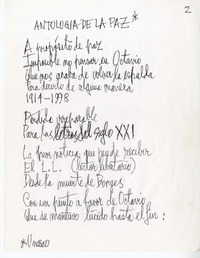 2
ANTOLOGIA DE LA PAZ*
A propósito de paz
Imposible no pensar en Octavio
Que nos acaba de volver la espalda
Para decirlo de alguna manera
1914-1998
Pérdida irreparable
Para las letras del siglo XXI
La peor noticia que puede recibir
El L.L. (lector libertario)
Desde la muerte de Borges
Con un punto a favor de Octavio
Que se mantuvo lúcido hasta el fin: